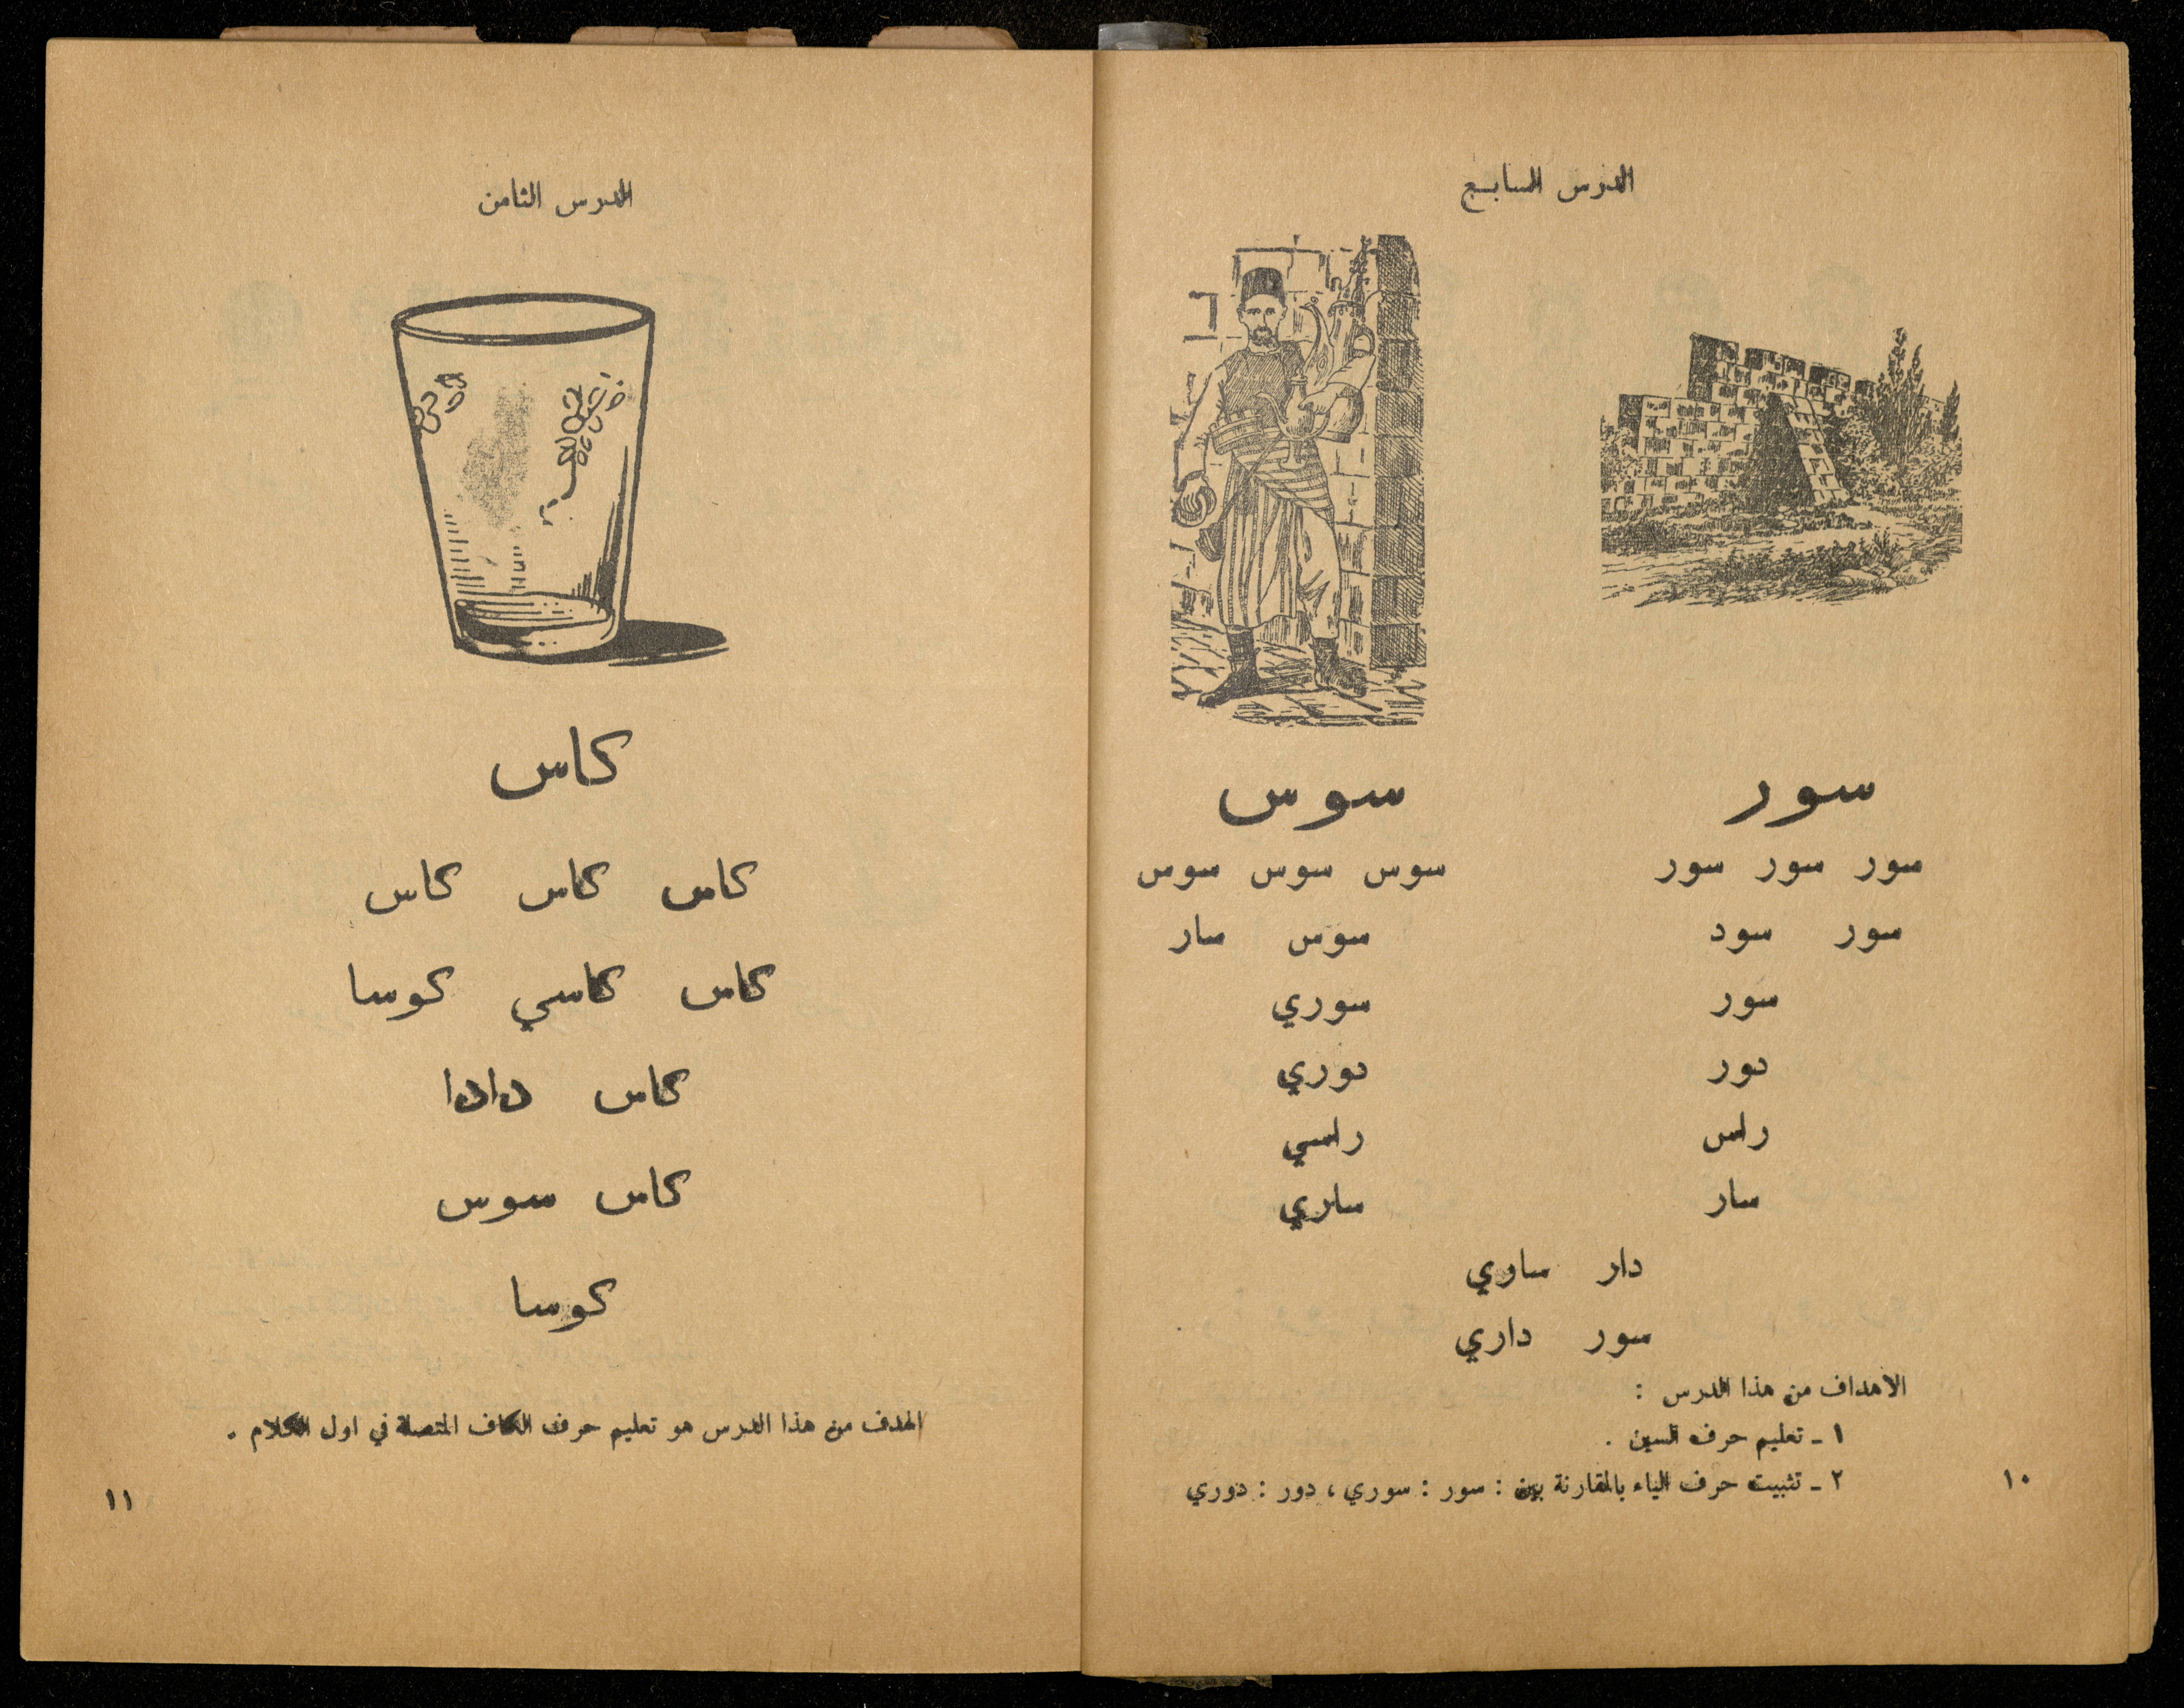 الدرس السابع
سور
سور سور سور
سور سود
سور
دور
راس
سار
سوس
سوس سوس سوس
سوس سار
سوري
دوري
راسي
ساري
دار ساري
سور داري
الاهداف من هذا الدرس :
١ ـ تعليم حرف السين .
٢ ـ تثبيت حرف الياء بالمقارنة بين : سور : سوري ، دور : دوري
١٠
الدرس الثامن
كاس
كاس كاس كاس
كاس كاسي كوسا
كاس دادا
كاس سوس
كوسا
الهدف من هذا الدرس هو تعليم حرف الكاف المتصلة في اول الكلام .
١١